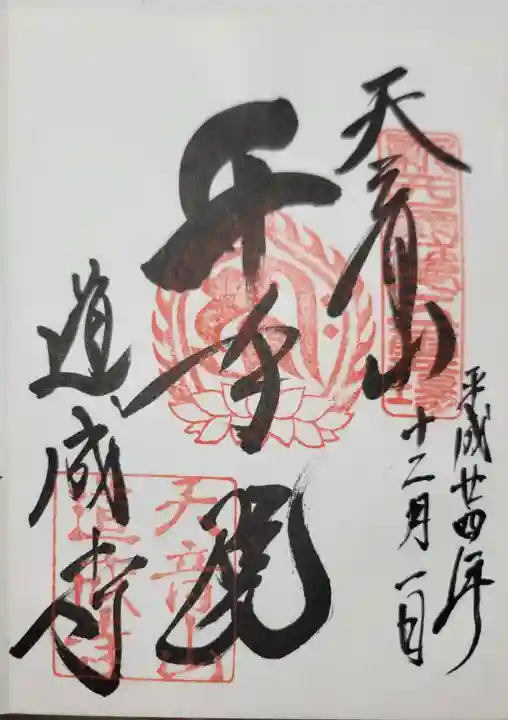 平成廿四年
十二月一日
天音山
千手
道成寺
天音山
道成寺